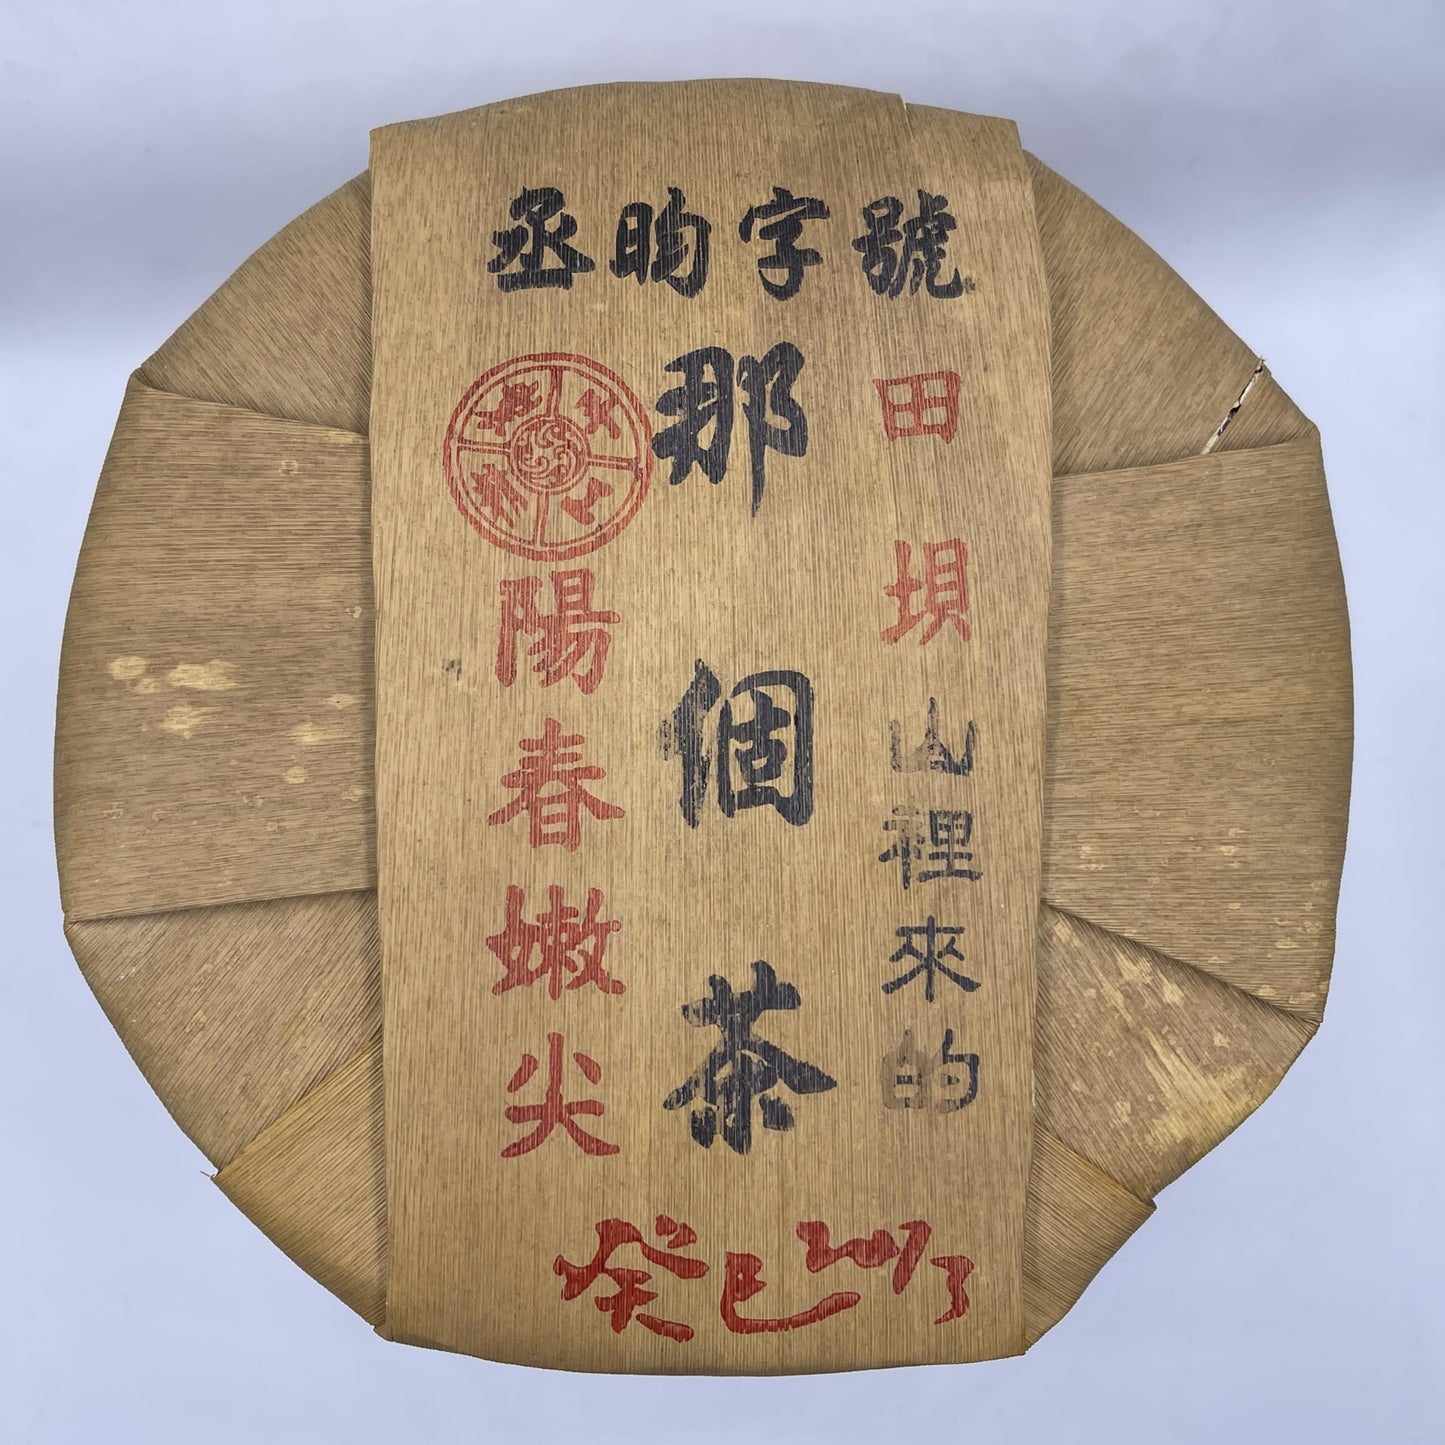 丞昀字號
田壩山裡來的
那個茶
陽春嫩尖
癸巳2013